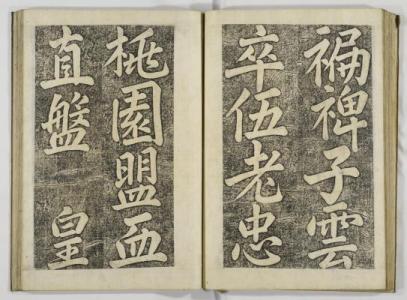 褊裨子雲
卒伍老忠
桃園盟血
直盤 皇